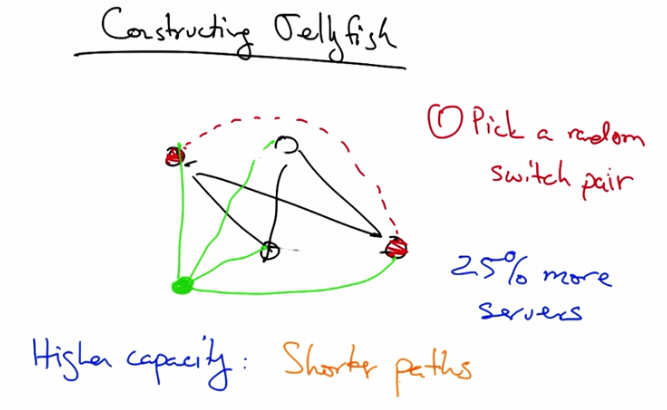 Constructing Jellyfish
① Pick a random
switch pair
25% more
servers
Higher capacity: Shorter paths